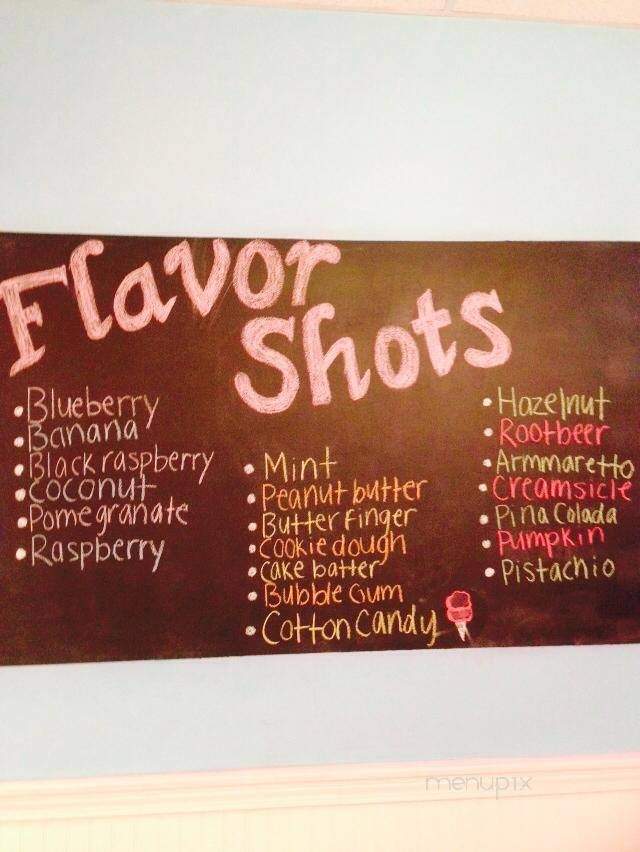 Flavor
Shots
•Blueberry
•Banana
•Black raspberry
•Coconut
•Pomegranate
•Raspberry
•Mint
•Peanut butter
•Butter finger
•Cookie dough
•Cake batter
•Bubble Gum
•Cotton Candy
•Hazelnut
•Rootbeer
•Armmaretto
•Creamsicle
•Pina Colada
•Pumpkin
•Pistachio
menupix